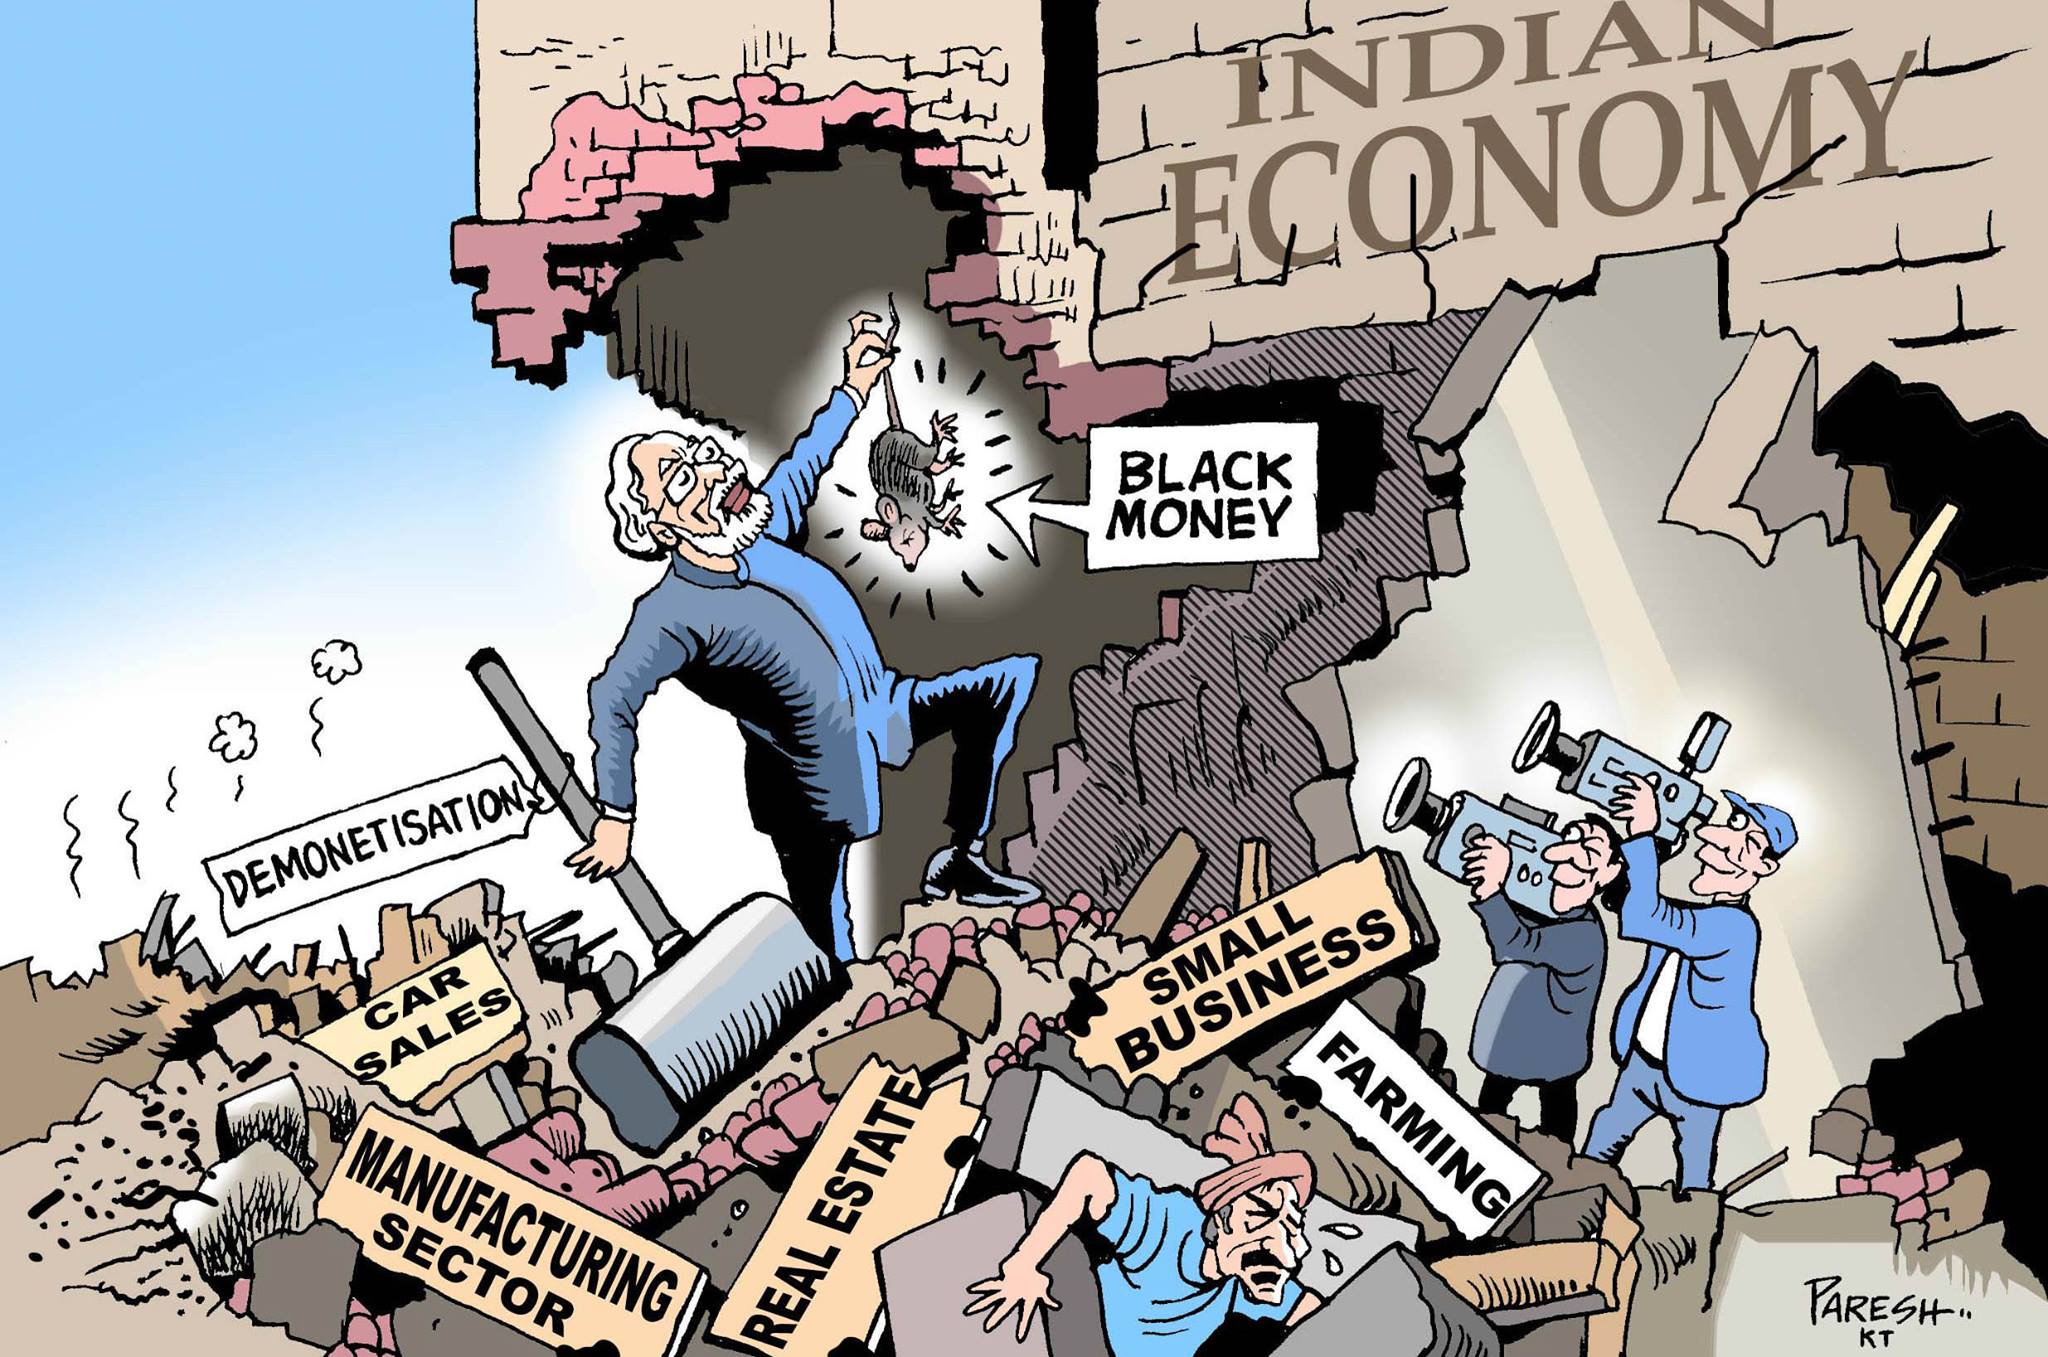 INDIAN
ECONOMY
BLACK
MONEY
DEMONETISATION
CAR
SALES
SMALL
BUSINESS
FARMING
MANUFACTURING
SECTOR
REAL ESTATE
PARESH
KT